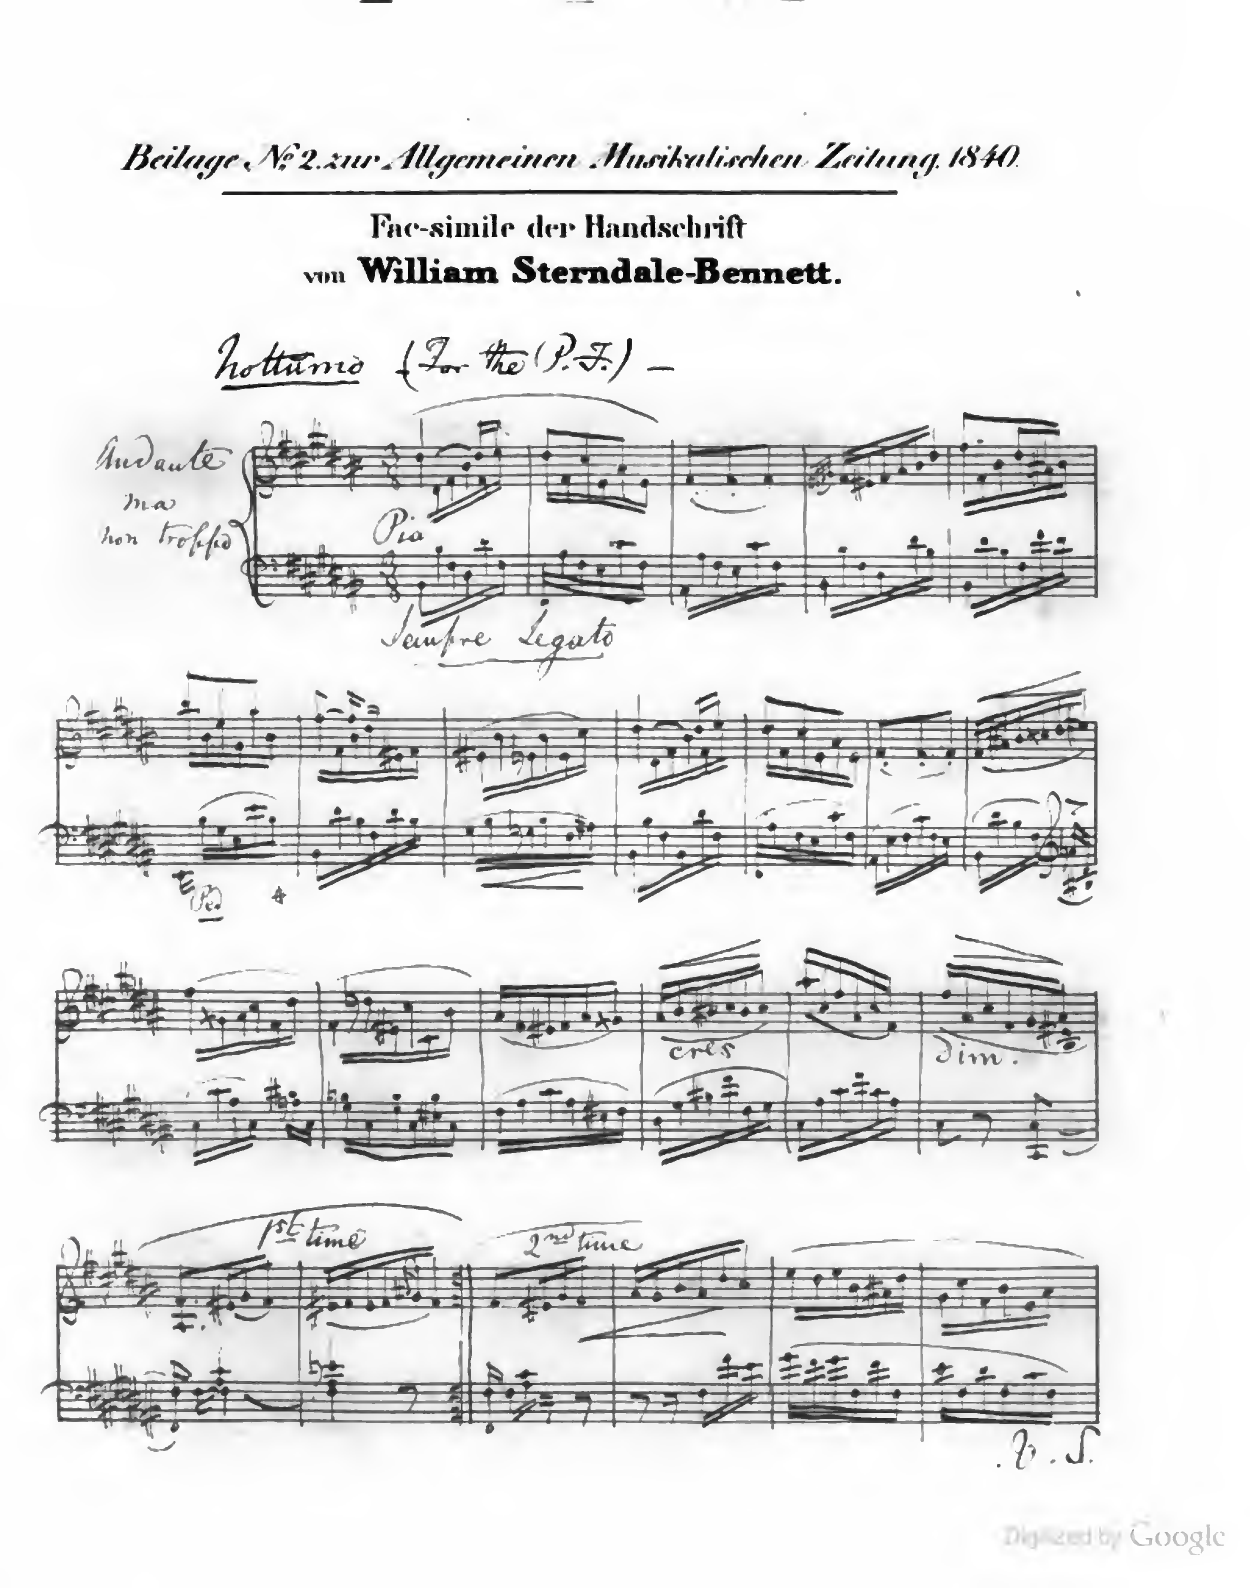 Beilage No. 2. zur Allgemeinen Musikalischen Zeitung. 1840.
Fac-simile der Handschrift
von William Sterndale-Bennett.
Notturno (For the P.F.) —
Andante
ma
non troppo
Pia
Sempre Legato
Ped
cres
dim.
1st time
2nd time
V. S.
Digitized by Google